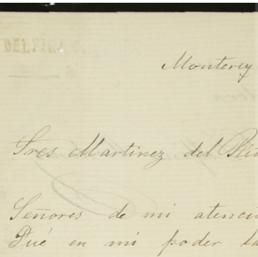 Monterey
Sres. Martinez del Rio
Señores de mi atenci
Fué en mi poder la